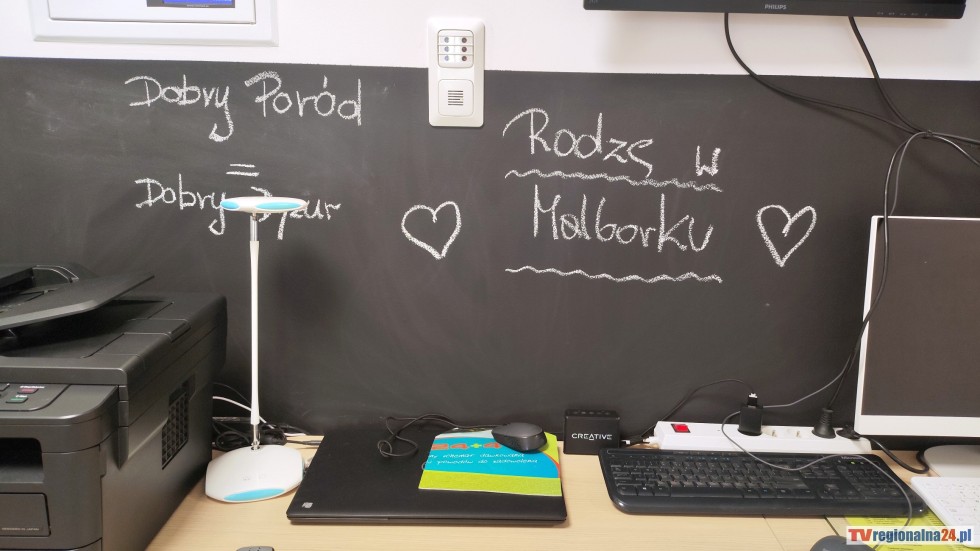 PHILIPS
Dobry Poród
=
Dobry Dyżur
Rodzę w
Malborku
CREATIVE
TVregionalna24.pl